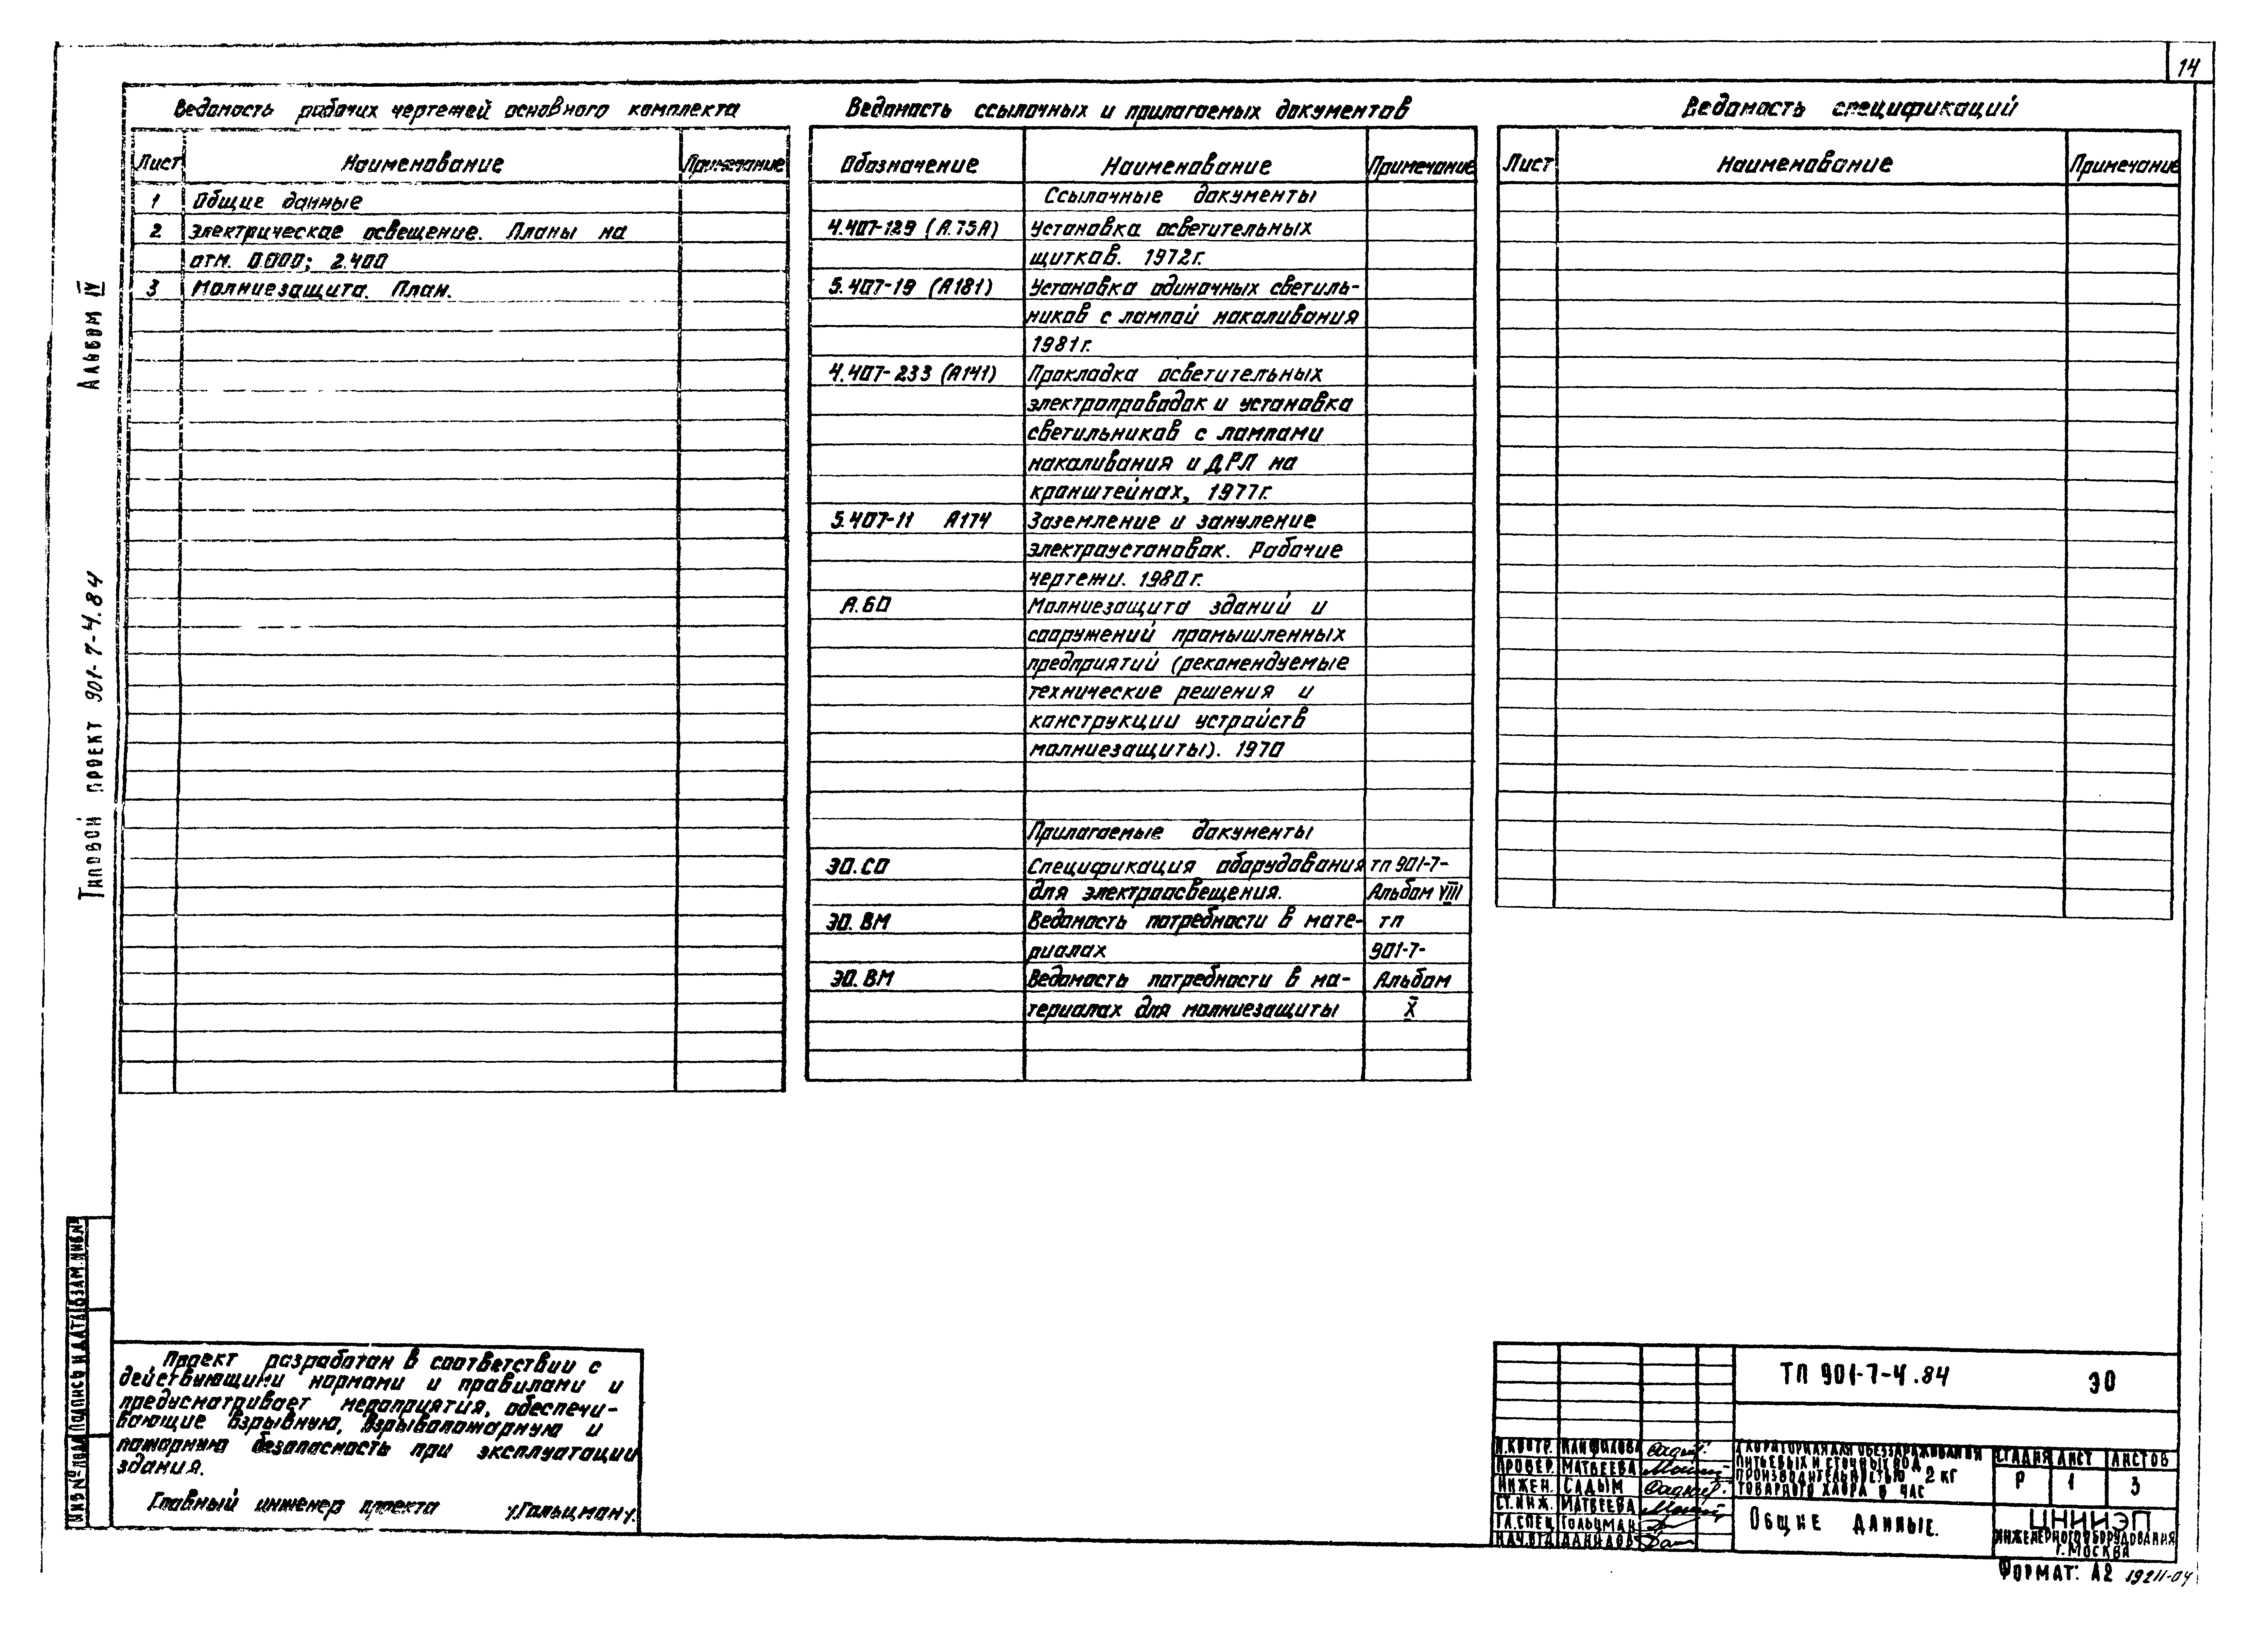 14
Ведомость рабочих чертежей основного комплекта
Лист Наименование Примечание
1 Общие данные
2 Электрическое освещение. Планы на
отм. 0.000; 2.400
3 Молниезащита. План.
Ведомость ссылочных и прилагаемых документов
Обозначение Наименование Примечание
Ссылочные документы
4.407-129 (А.75А) Установка осветительных
щитков. 1972г.
5.407-19 (А181) Установка одиночных светиль-
ников с лампой накаливания
1981г.
4.407-233 (А141) Прокладка осветительных
электропроводок и установка
светильников с лампами
накаливания и ДРЛ на
кронштейнах, 1977г.
5.407-11 А174 Заземление и зануление
электроустановок. Рабочие
чертежи. 1980г.
А.60 Молниезащита зданий и
сооружений промышленных
предприятий (рекомендуемые
технические решения и
конструкции устройств
молниезащиты). 1970
Прилагаемые документы
ЭО.СО Спецификация оборудования ТП 901-7-
для электроосвещения. Альбом VIII
ЭО.ВМ Ведомость потребности в мате- ТП
риалах 901-7-
ЭО.ВМ Ведомость потребности в ма- Альбом
териалах для молниезащиты X
Ведомость спецификаций
Лист Наименование Примечание
Альбом IV
Типовой проект 901-7-4.84
Взам.инв.№
Подпись и дата
Инв № подл
Проект разработан в соответствии с
действующими нормами и правилами и
предусматривает мероприятия, обеспечи-
вающие взрывную, взрывопожарную и
пожарную безопасность при эксплуатации
здания.
Главный инженер проекта /Гольцман/.
ТП 901-7-4.84 ЭО
Н.контр.
Провер. Матвеева
Инжен. Садым
Ст.инж. Матвеева
Гл.спец Гольцман
Нач.отд Данилов
обеззараживания
питьевых и сточных вод
производительностью 2 кг
товарного хлора в час
Стадия Лист Листов
Р 1 3
Общие данные.
ЦНИИЭП
инженерного оборудования
г.Москва
Формат: А2 19211-04